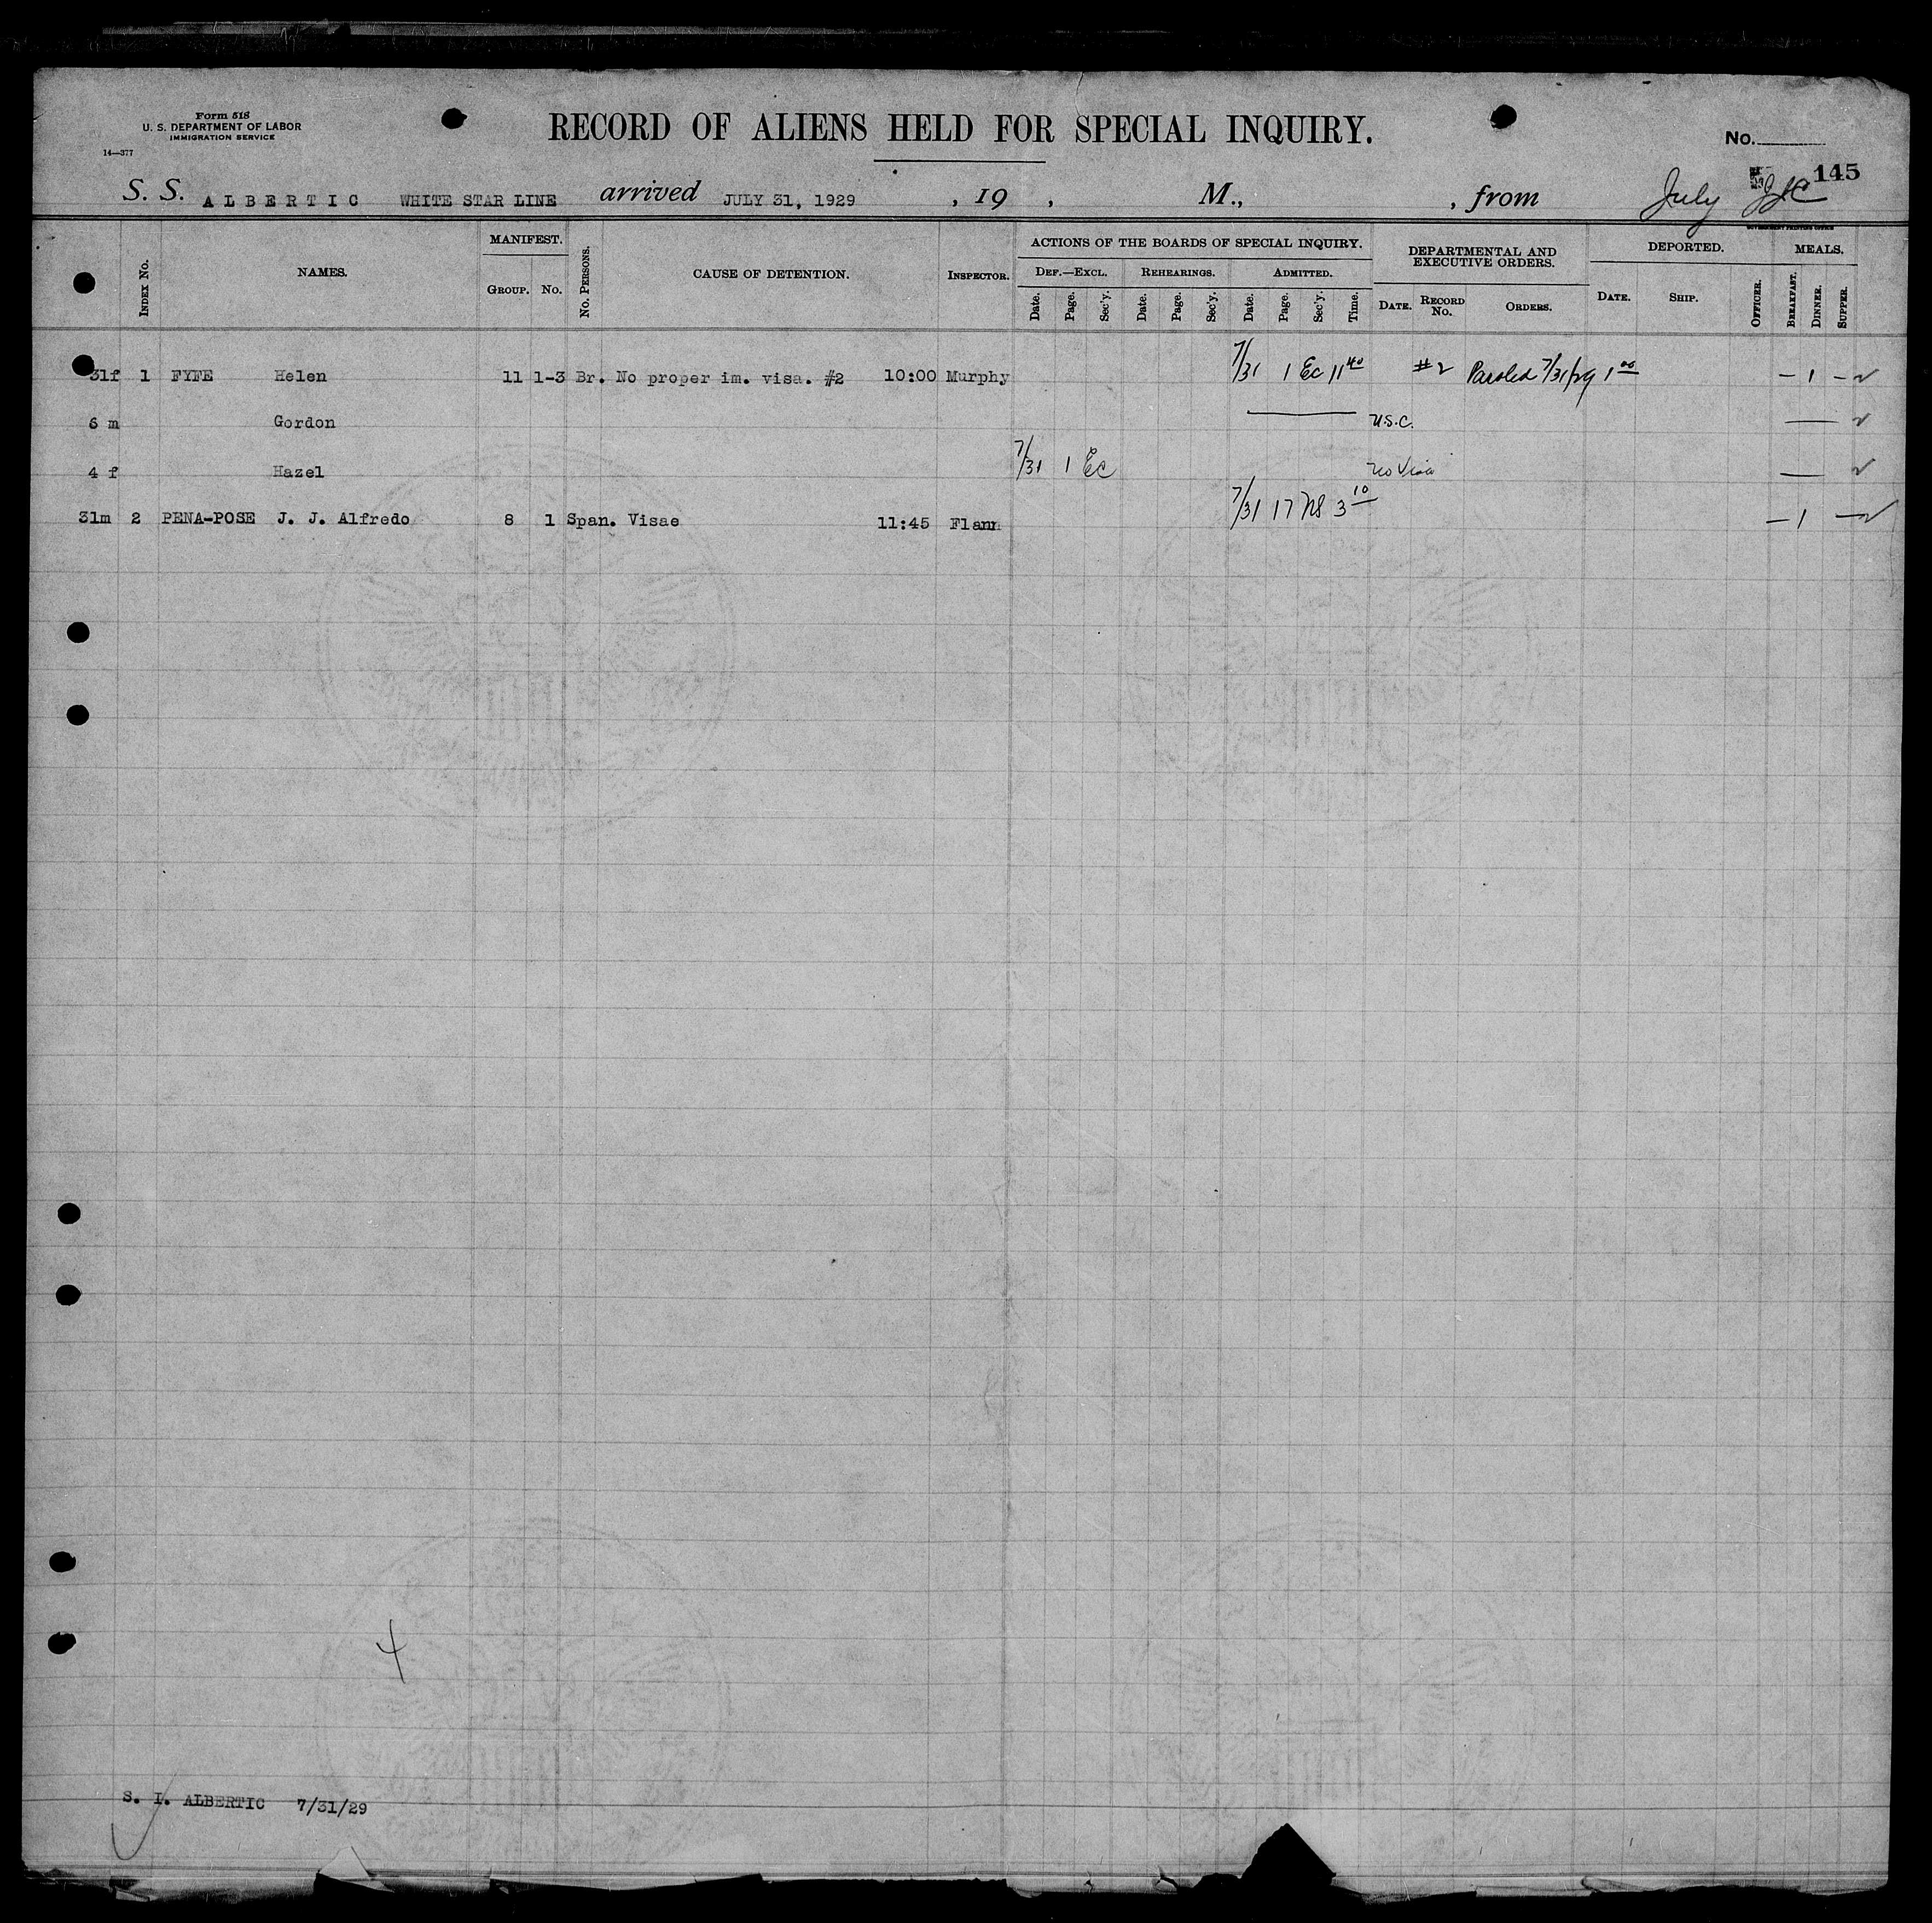 Form 518
U. S. DEPARTMENT OF LABOR
IMMIGRATION SERVICE
14—377
RECORD OF ALIENS HELD FOR SPECIAL INQUIRY.
No.
145
S. S. ALBERTIC WHITE STAR LINE arrived JULY 31, 1929 , 19 , M., , from July
GOVERNMENT PRINTING OFFICE
INDEX No. NAMES. MANIFEST. GROUP. No. No. PERSONS. CAUSE OF DETENTION. INSPECTOR. ACTIONS OF THE BOARDS OF SPECIAL INQUIRY. DEPARTMENTAL AND EXECUTIVE ORDERS. DEPORTED. MEALS.
DEF.—EXCL. REHEARINGS. ADMITTED.
Date. Page. Sec'y. Date. Page. Sec'y. Date. Page. Sec'y. Time. DATE. RECORD No. ORDERS. DATE. SHIP. OFFICER. BREAKFAST. DINNER. SUPPER.
31f 1 FYFE Helen 11 1-3 Br. No proper im. visa. #2 10:00 Murphy 7/31 1 Ec 11 40 #2 Paroled 7/31/29 1 00 — 1 —
6 m Gordon U.S.C. —
4 f Hazel 7/31 1 Ec no Visa —
31m 2 PENA-POSE J. J. Alfredo 8 1 Span. Visae 11:45 Flann 7/31 17 3 10 — 1 —
4
S. I. ALBERTIC 7/31/29